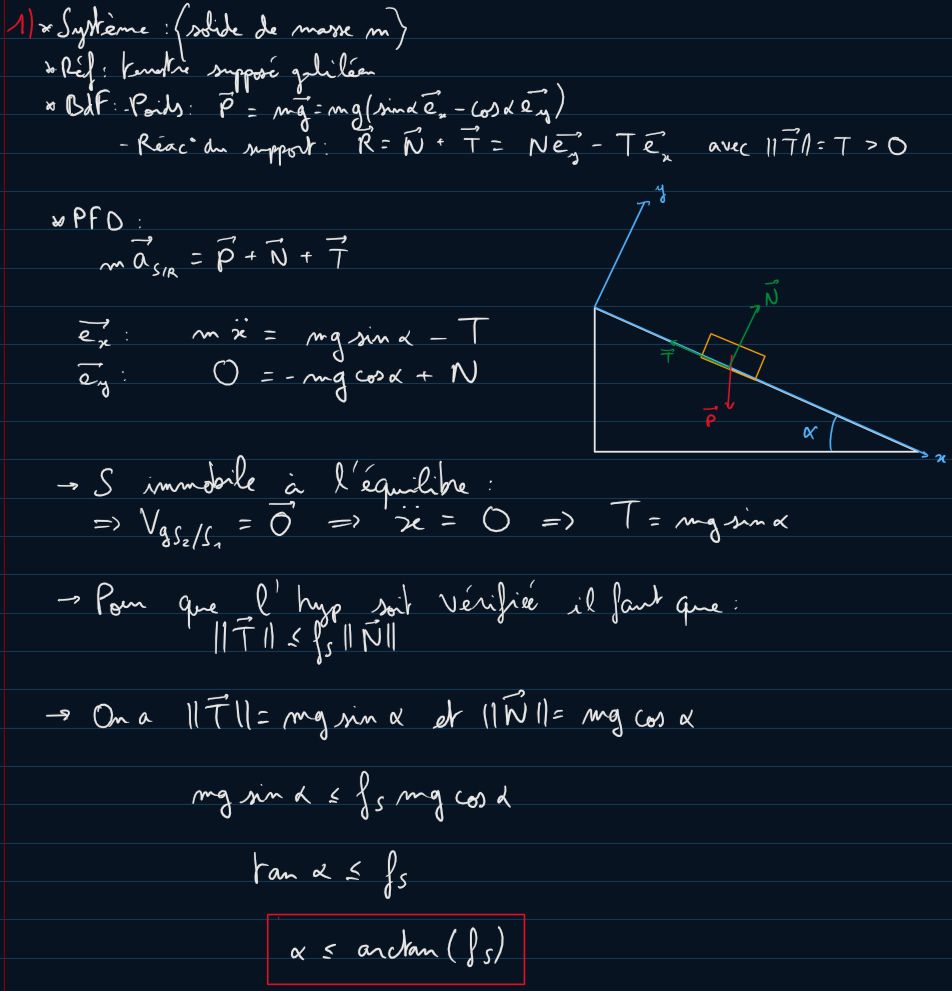 1) * Système : {solide de masse m}
* Réf : terrestre supposé galiléen
* BdF : - Poids : P⃗ = mg⃗ = mg(sinα e⃗x - cosα e⃗y)
- Réac° du support : R⃗ = N⃗ + T⃗ = N e⃗y - T e⃗x avec ||T⃗|| = T > 0
* PFD :
m a⃗S/R = P⃗ + N⃗ + T⃗
e⃗x : m ẍ = mg sin α - T
e⃗y : 0 = - mg cos α + N
y
N⃗
T⃗
P⃗
α
x
→ S immobile à l'équilibre :
=> VgS2/S1 = 0⃗ => ẍ = 0 => T = mg sin α
→ Pour que l'hyp soit vérifiée il faut que :
||T⃗|| ≤ fs ||N⃗||
→ On a ||T⃗|| = mg sin α et ||N⃗|| = mg cos α
mg sin α ≤ fs mg cos α
tan α ≤ fs
α ≤ arctan(fs)